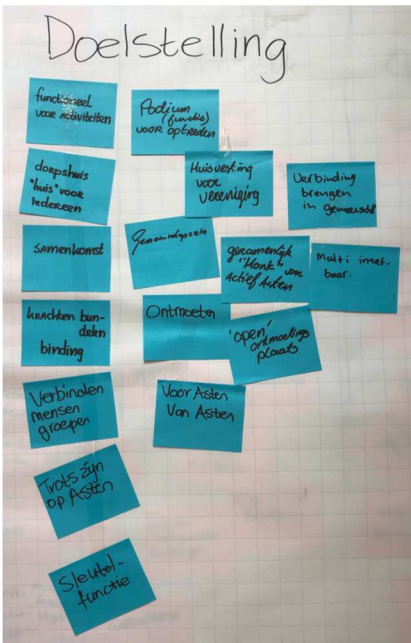 Doelstelling
functioneel
voor activiteiten
Podium
(functie)
voor optreden
dorpshuis
"huis" voor
Iedereen
Huisvesting
voor
vereniging
Verbinding
brengen
in
samenkomst
gezamenlijk
"Honk" voor
Actief Asten
Multi inzet-
baar.
krachten bun-
delen
binding
Ontmoeten
'open'
ontmoetings
plaats
Verbinden
mensen
groepen
Voor Asten
Van Asten
Trots zijn
op Asten
Sleutel-
functie